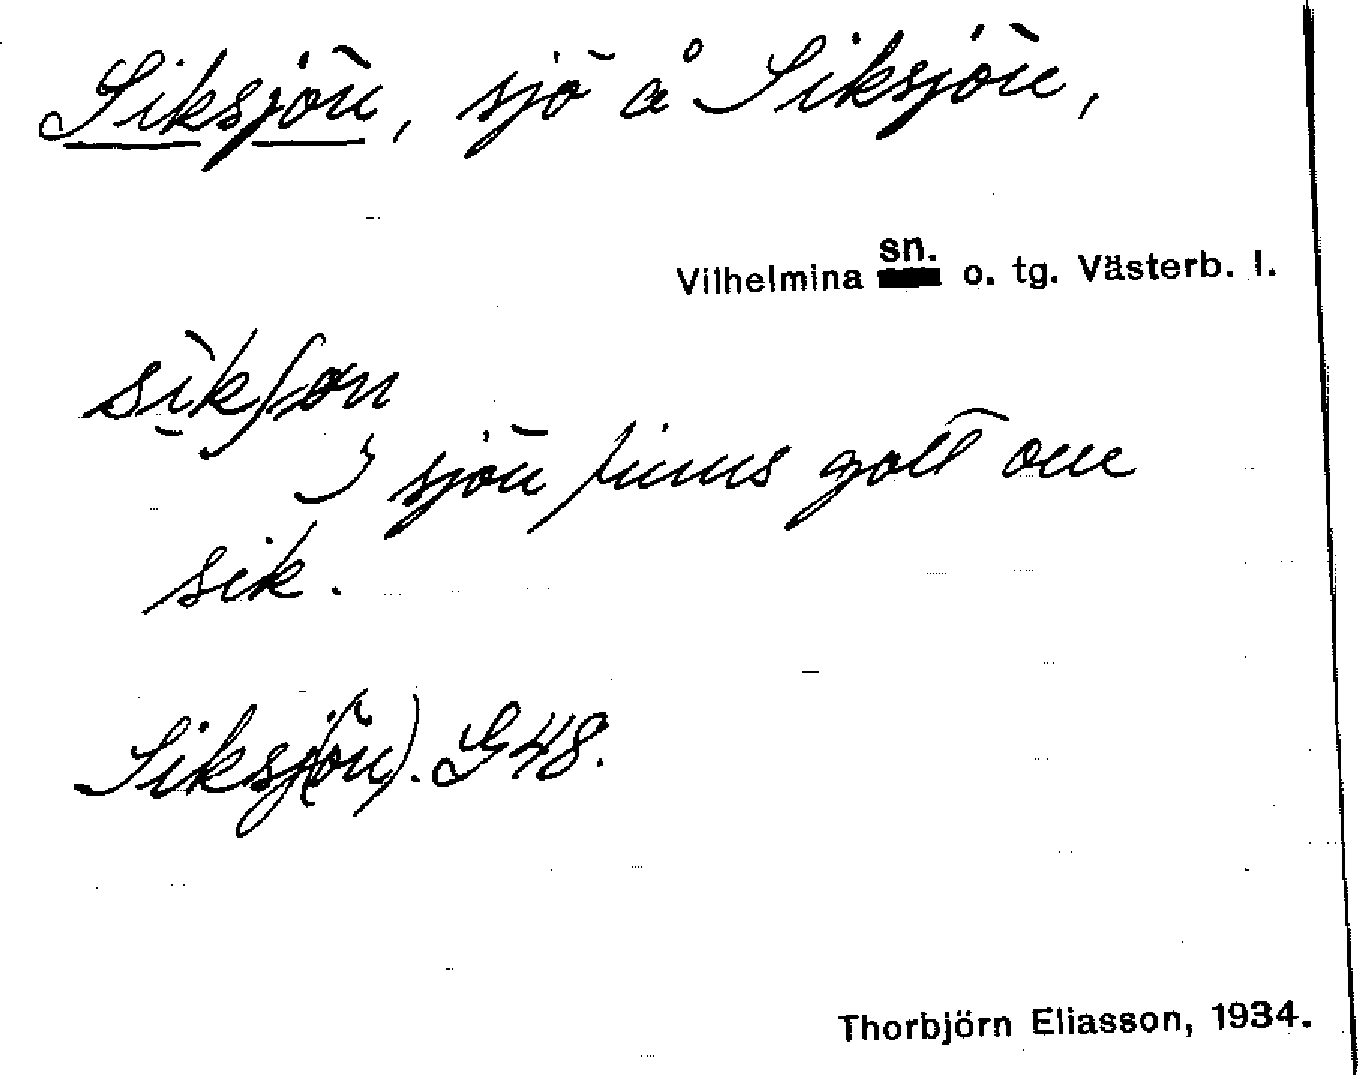 Siksjön, sjö å Siksjön,
Vilhelmina sn. o. tg. Västerb. l.
sìkʃøn
I sjön finns gott om
sik.
Siksj(ön). G48.
Thorbjörn Eliasson, 1934.